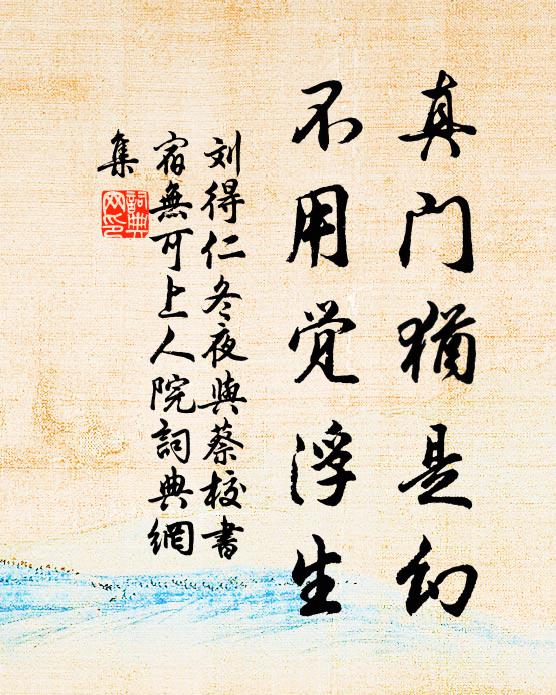 真门犹是幻
不用觉浮生
刘得仁冬夜與蔡校書
宿無可上人院詞典網
集
詞典
网印